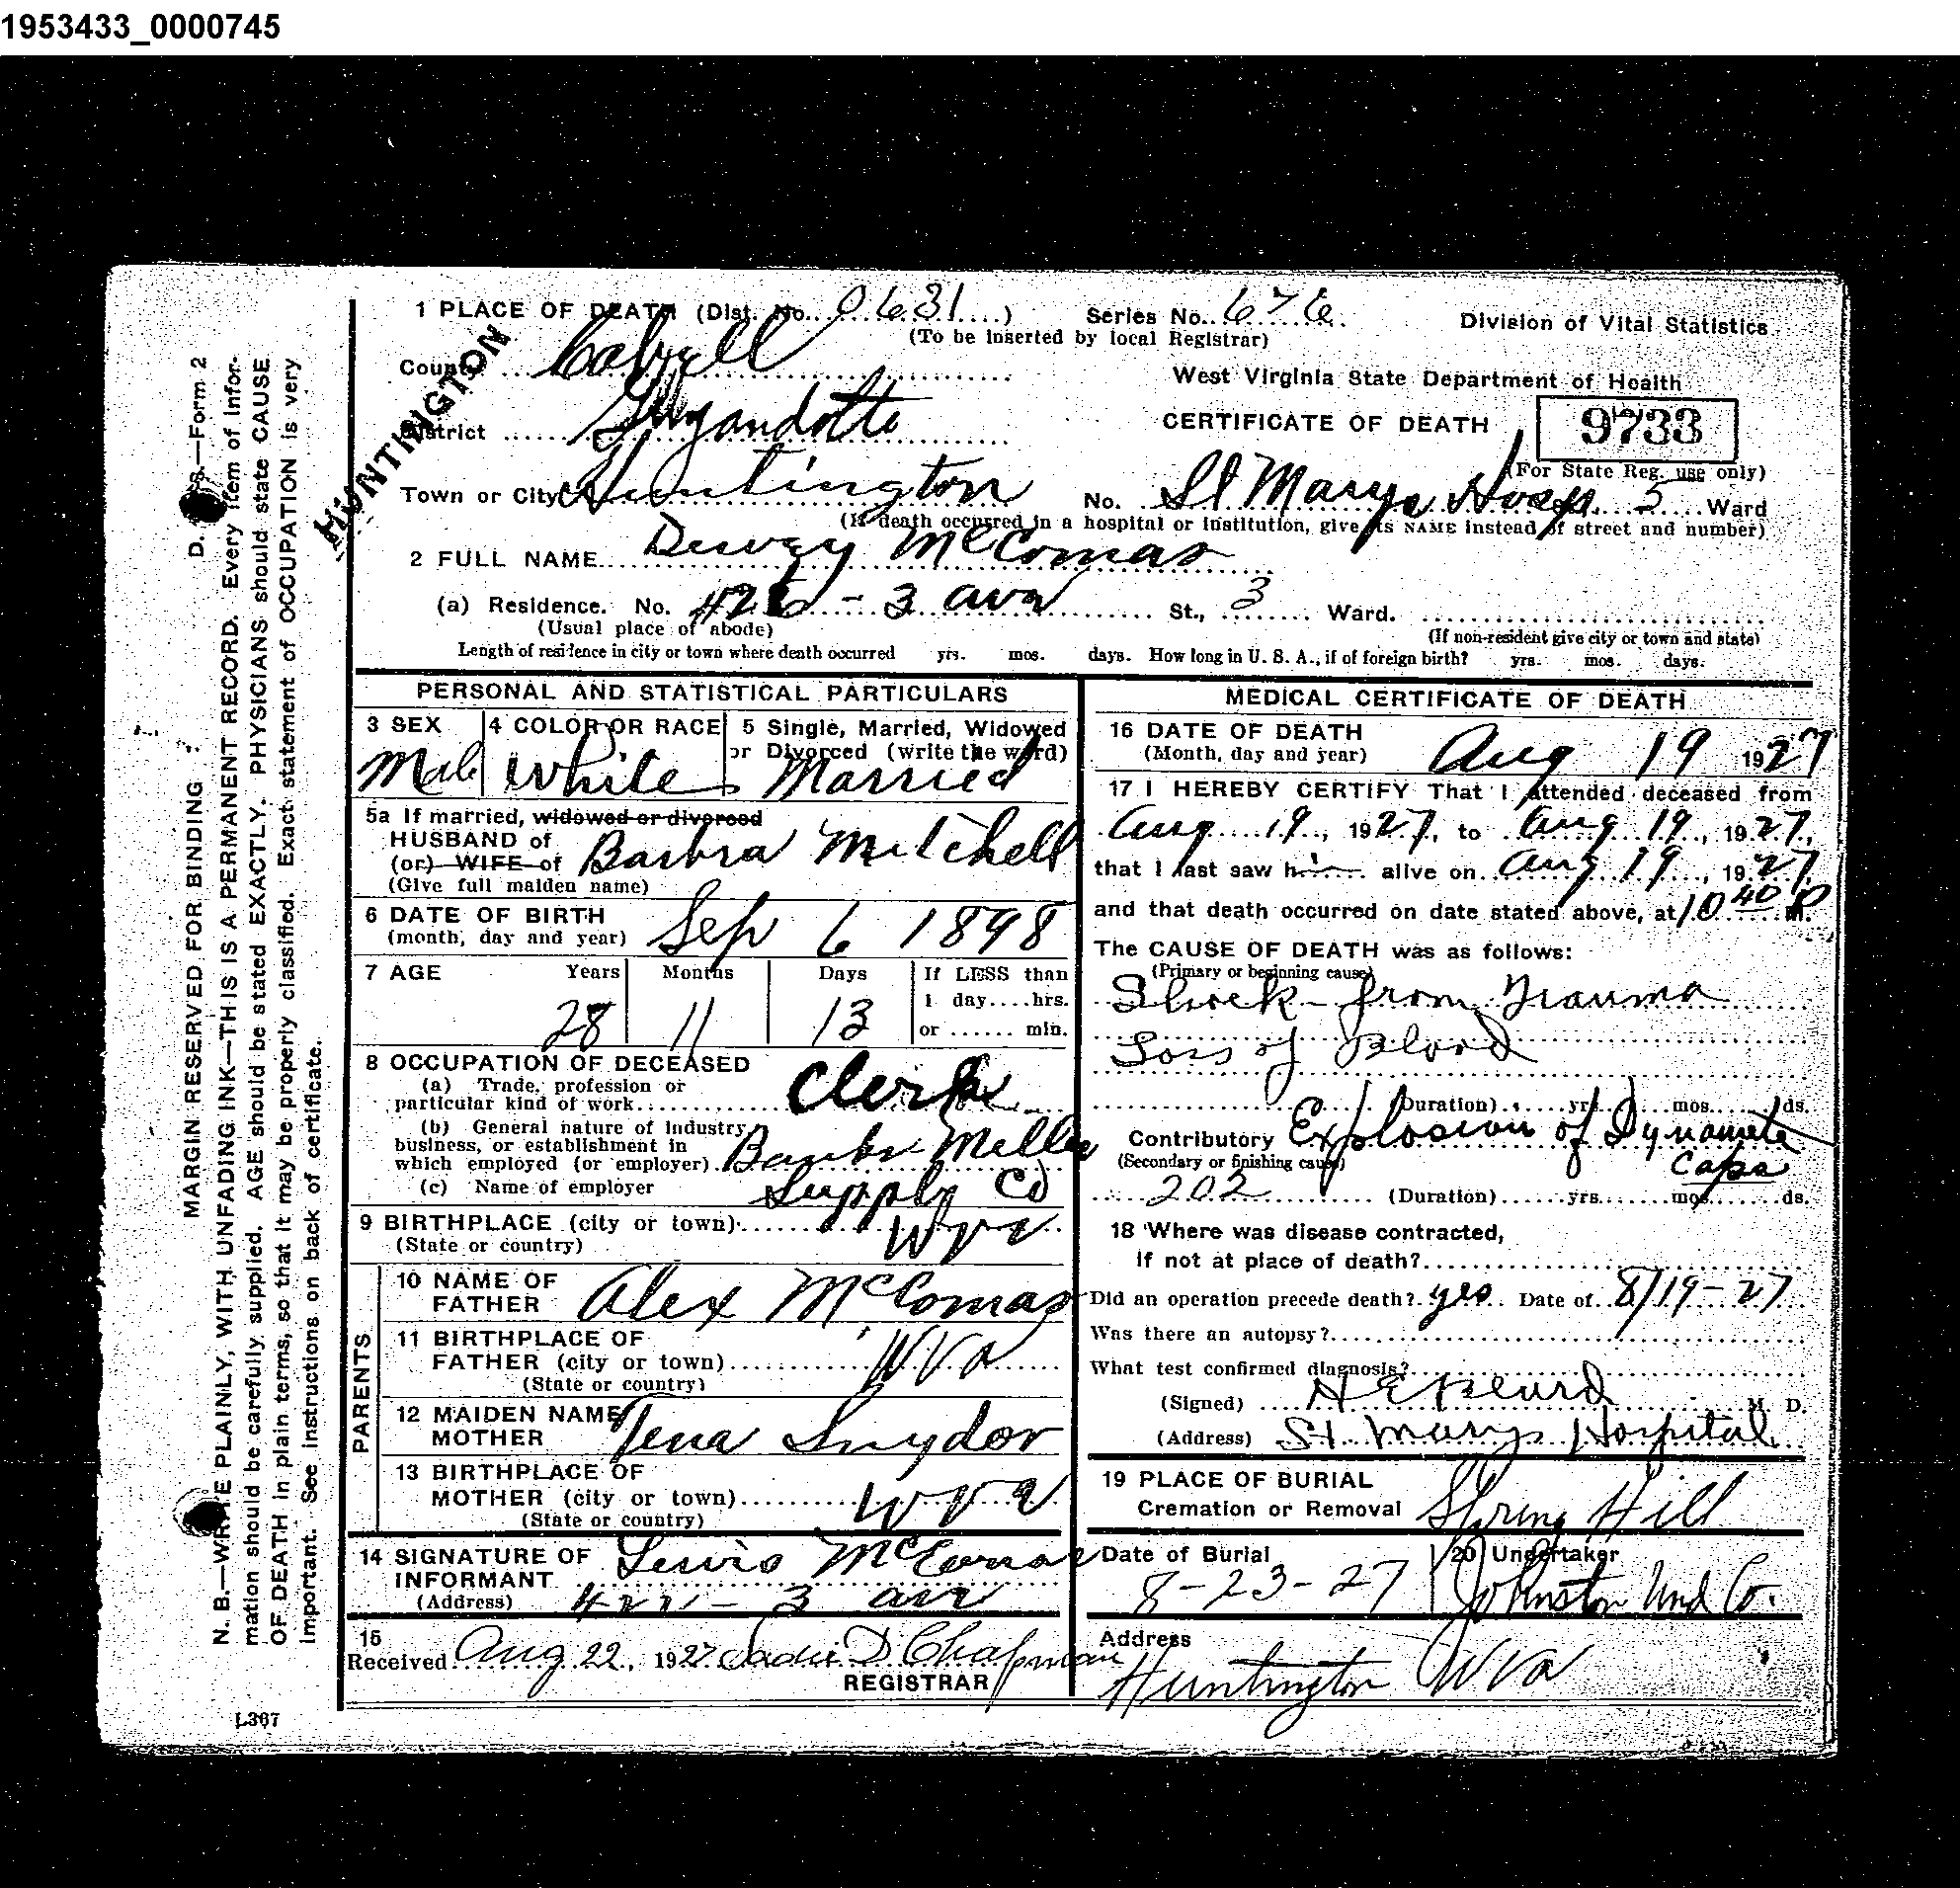 1953433_0000745
1 PLACE OF DEATH (Dist. No. 0631) Series No. 676 Division of Vital Statistics
(To be inserted by local Registrar)
County Cabell West Virginia State Department of Health
HUNTINGTON
District Guyandotte CERTIFICATE OF DEATH 9733
(For State Reg. use only)
Town or City Huntington No. St Marys Hosp. 5 Ward
(If death occurred in a hospital or institution, give its NAME instead of street and number)
2 FULL NAME Dewey McComas
(a) Residence. No. - 3 ave St., 3 Ward.
(Usual place of abode) (If non-resident give city or town and state)
Length of residence in city or town where death occurred yrs. mos. days. How long in U. S. A., if of foreign birth? yrs. mos. days.
PERSONAL AND STATISTICAL PARTICULARS
3 SEX 4 COLOR OR RACE 5 Single, Married, Widowed
or Divorced (write the word)
Male White Married
5a If married, widowed or divorced
HUSBAND of
(or) WIFE of Barbra Mitchell
(Give full maiden name)
6 DATE OF BIRTH
(month, day and year) Sep 6 1898
7 AGE Years Months Days If LESS than
1 day....hrs.
28 11 13 or ...... min.
8 OCCUPATION OF DECEASED
(a) Trade, profession or
particular kind of work Clerk
(b) General nature of industry,
business, or establishment in
which employed (or employer) Banks Miller
(c) Name of employer Supply Co
9 BIRTHPLACE (city or town) W Va
(State or country)
PARENTS
10 NAME OF
FATHER Alex McComas
11 BIRTHPLACE OF
FATHER (city or town) W Va
(State or country)
12 MAIDEN NAME
MOTHER Tena Snydor
13 BIRTHPLACE OF
MOTHER (city or town) W Va
(State or country)
14 SIGNATURE OF
INFORMANT Lewis McComas
(Address) - 3 ave
15
Received Aug 22, 1927 Sadie D Chapman
REGISTRAR
MEDICAL CERTIFICATE OF DEATH
16 DATE OF DEATH
(Month, day and year) Aug 19 1927
17 I HEREBY CERTIFY That I attended deceased from
Aug 19, 1927, to Aug 19, 1927,
that I last saw him alive on Aug 19, 1927,
and that death occurred on date stated above, at 10 40 P m.
The CAUSE OF DEATH was as follows:
(Primary or beginning cause)
Shock from Trauma
Loss of Blood
(Duration) yrs. mos. ds.
Contributory Explosion of Dynamite
(Secondary or finishing cause) Caps
202 (Duration) yrs. mos. ds.
18 Where was disease contracted,
if not at place of death?
Did an operation precede death? yes Date of 8/19-27
Was there an autopsy?
What test confirmed diagnosis?
(Signed) H E Beard M. D.
(Address) St. Marys Hospital
19 PLACE OF BURIAL
Cremation or Removal Spring Hill
Date of Burial 20 Undertaker
8-23-27 Johnston Und Co.
Address
Huntington W Va
MARGIN RESERVED FOR BINDING D. S.—Form 2
N. B.—WRITE PLAINLY, WITH UNFADING INK—THIS IS A PERMANENT RECORD. Every item of infor-
mation should be carefully supplied. AGE should be stated EXACTLY. PHYSICIANS should state CAUSE
OF DEATH in plain terms, so that it may be properly classified. Exact statement of OCCUPATION is very
important. See instructions on back of certificate.
L367